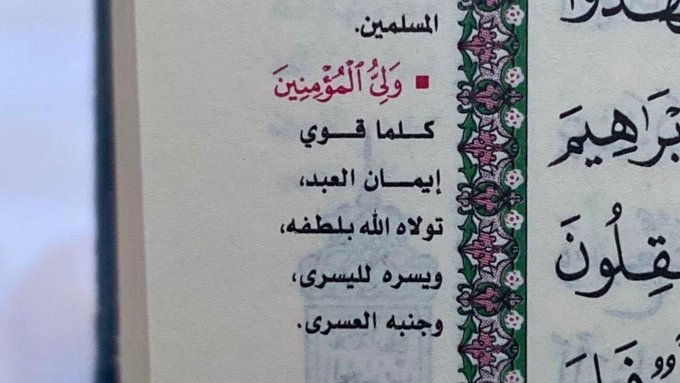 المسلمين.
▪ وَلِيُّ ٱلْمُؤْمِنِينَ
كلما قوي
إيمان العبد،
تولاه الله بلطفه،
ويسره لليسرى،
وجنبه العسرى.